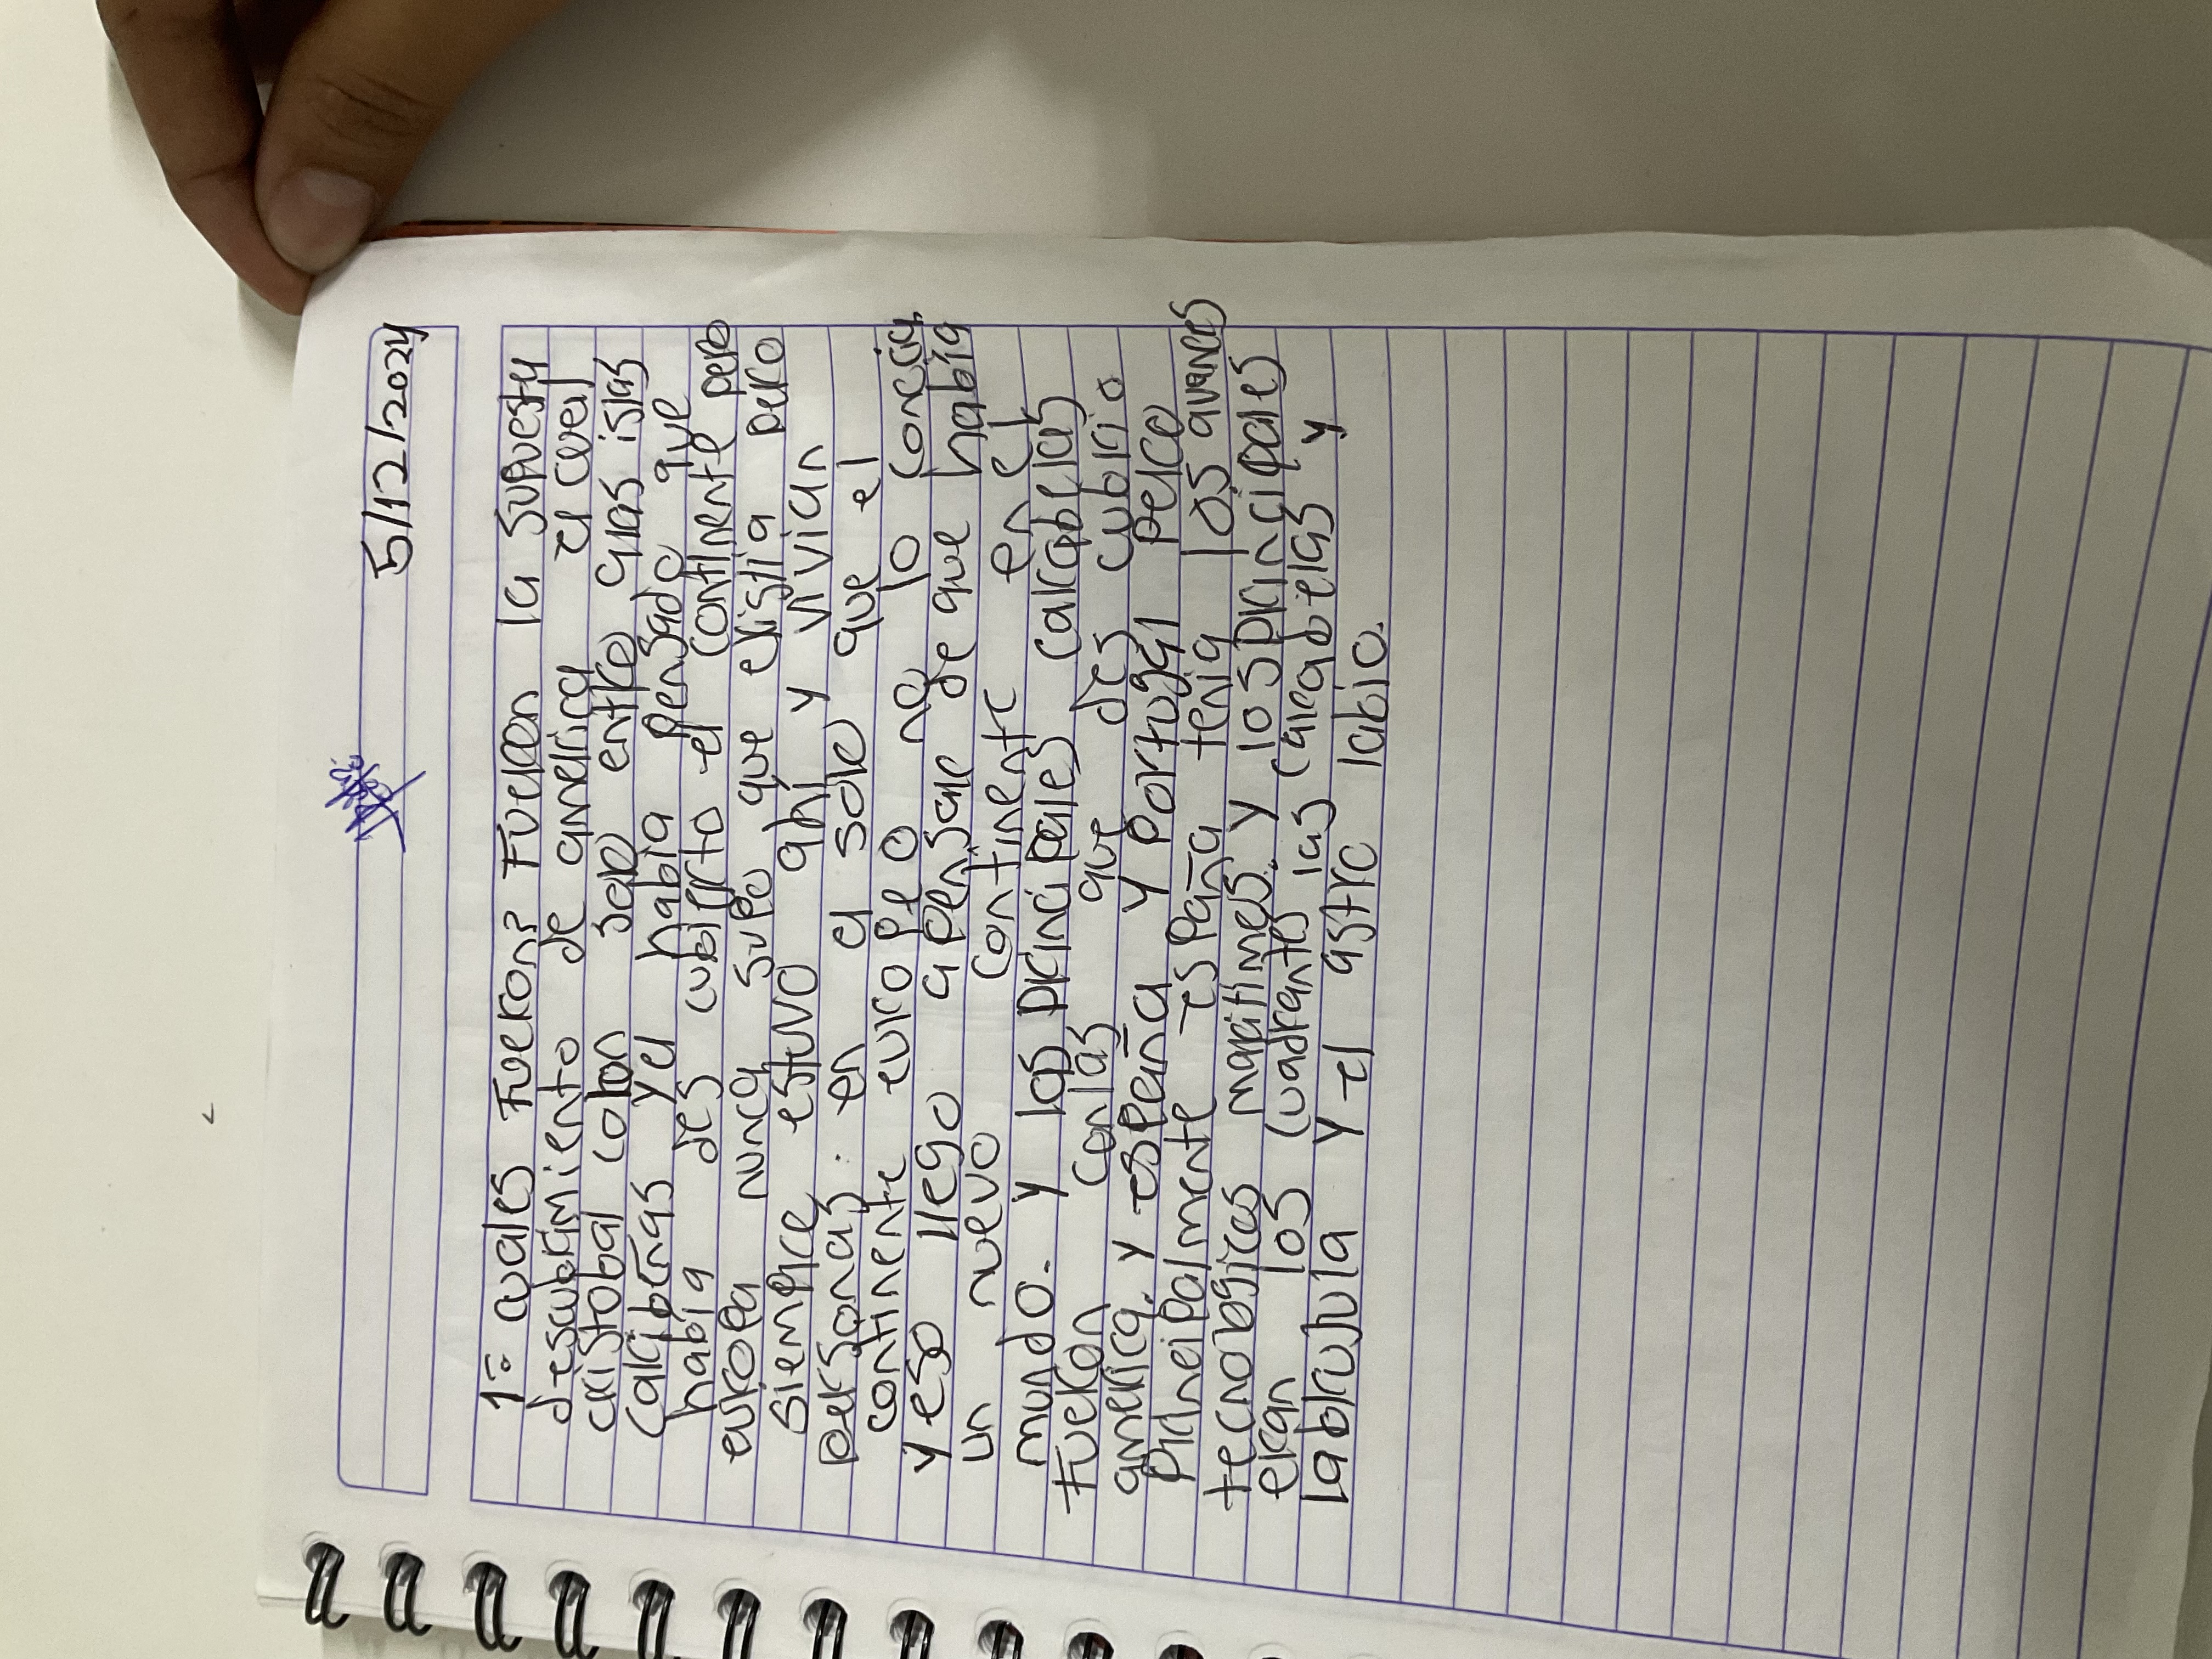 5/12/2024
1= cuales Fueron? Fueron la supuesta
descubrimiento de america el cual
cristobal colon solo entro a las islas
caribeñas y el habia pensado que
habia des cubierto el continente pero
europa nunca supo que existia pero
siempre estuvo ahi y vivian
personas. en el solo que el
continente europeo no lo conocia
y eso llego a pensar de que habia
un nuevo continente en el
mundo. y las principales carabelas
Fueron con las que des cubrio
america. y españa y Portugal pero
principalmente españa tenia los avances
tecnologicos maritimos. y los principales
eran los cuadrantes las carabelas y
la brujula y el astro labio.